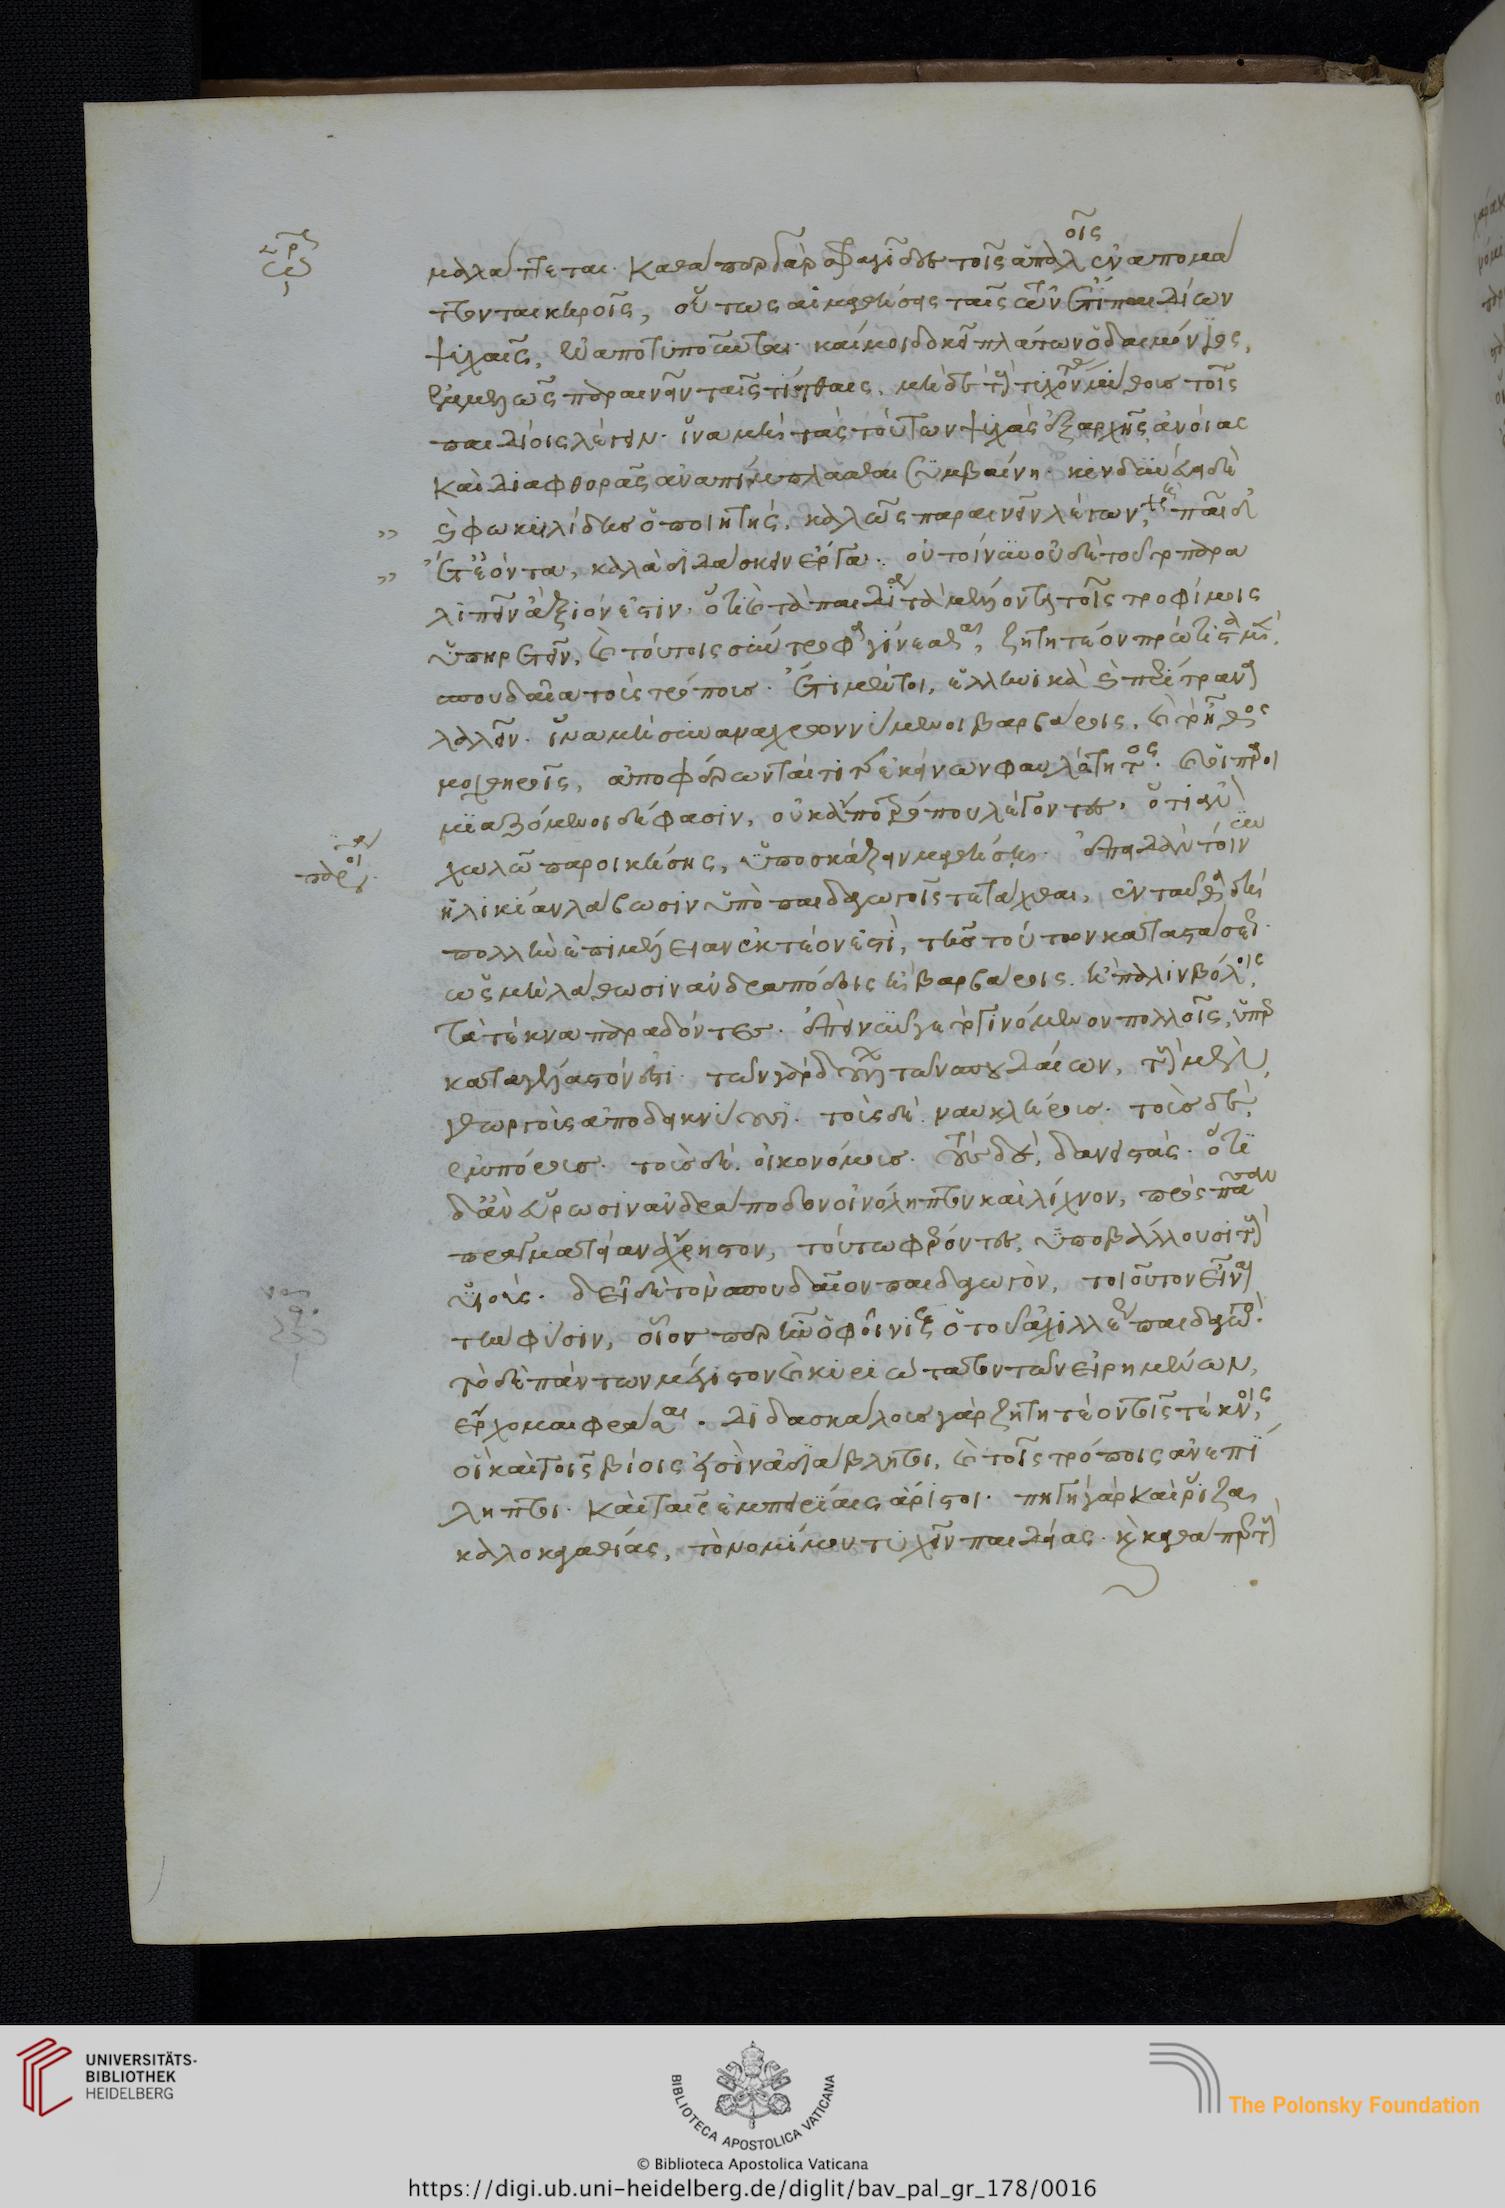 μαλάττεται. καθάπερ γὰρ σφραγῖδες τοῖς ἁπαλοῖς ἐναπομά
ττονται κηροῖς, οὕτως αἱ μαθήσεις ταῖς τῶν ἔτι παιδίων
ψυχαῖς, ἐναποτυποῦνται. καί μοι δοκεῖ πλάτων ὁ δαιμόνιος,
ἐμμελῶς παραινεῖν ταῖς τίτθαις, μηδὲ τοὺς τυχόντας μύθους τοῖς
παιδίοις λέγειν. ἵνα μὴ τὰς τούτων ψυχὰς ἐξαρχῆς ἀνοίας
καὶ διαφθορᾶς ἀναπίμπλασθαι συμβαίνη. κινδυνεύει δὲ
» καὶ φωκυλίδης ὁ ποιητής, καλῶς παραινεῖν λέγων, χρὴ παῖδ'
» ἔτ' ἐόντα, καλὰ διδάσκειν ἔργα. οὐ τοίνυν οὐδὲ τοῦτο παρα
λιπεῖν ἄξιόν ἐστιν, ὅτι καὶ τὰ παιδία τὰ μέλλοντα τοῖς τροφίμοις
ὑπηρετεῖν, καὶ τούτοις σύντροφα γίνεσθαι, ζητητέον πρώτιστα μὲν,
σπουδαῖα τοὺς τρόπους. ἔτι μέντοι, ἑλληνικὰ καὶ περίτρανα
λαλεῖν. ἵνα μὴ συναναχρωννύμενοι βαρβάροις, καὶ τὸ ἦθος
μοχθηροῖς, ἀποφέρωνταί τι τῆς ἐκείνων φαυλότητος. καὶ οἱ παροι
μιαζόμενοι δέ φασιν, οὐκ ἀπὸ τρόπου λέγοντες, ὅτι ἂν
χωλῶ παροικήσης, ὑποσκάζειν μαθήση. ἐπειδὰν τοίνυν
ἡλικίαν λάβωσιν ὑπὸ παιδαγωγοῖς τετάχθαι, ἐνταῦθα δὴ
πολλὴν ἐπιμέλειαν ἑκτέον ἐστὶ, τῆς τούτων καταστάσεως.
ὡς μὴ λάθωσιν ἀνδραπόδοις ἢ βαρβάροις, ἢ παλιμβόλοις,
τὰ τέκνα παραδόντες. ἐπεὶ νῦν γε τὸ γινόμενον πολλοῖς, ὑπερ
καταγέλαστόν ἐστι. τῶν γὰρ δούλων τῶν σπουδαίων, τοὺς μὲν,
γεωργοὺς ἀποδεικνύουσι. τοὺς δὲ ναυκλήρους. τοὺς δὲ,
ἐμπόρους. τοὺς δὲ, οἰκονόμους. τοὺς δὲ, δανειστάς. ὅτι
δ' ἂν εὕρωσιν ἀνδράποδον οἰνόληπτον καὶ λίχνον, πρὸς πᾶσαν
πραγματείαν ἄχρηστον, τούτω φέροντες, ὑποβάλλουσι τοὺς
υἱούς. δεῖ δὲ τὸν σπουδαῖον παιδαγωγὸν, τοιοῦτον εἶναι
τὴν φύσιν, οἷόν περ ἦν ὁ φοῖνιξ ὁ τοῦ ἀχιλλέως παιδαγωγός.
τὸ δὲ πάντων μέγιστον καὶ κυριώτατον τῶν εἰρημένων,
ἔρχομαι φράσαι. διδασκάλους γὰρ ζητητέον τοῖς τέκνοις,
οἳ καὶ τοῖς βίοις εἰσὶν ἀδιάβλητοι, καὶ τοῖς τρόποις ἀνεπί
ληπτοι. καὶ ταῖς ἐμπειρίαις ἄριστοι. πηγὴ γὰρ καὶ ῥίζα
καλοκαγαθίας, τὸ νομίμου τυχεῖν παιδείας. καὶ καθάπερ τοὺς
UNIVERSITÄTS-
BIBLIOTHEK
HEIDELBERG
BIBLIOTECA APOSTOLICA VATICANA
The Polonsky Foundation
© Biblioteca Apostolica Vaticana
https://digi.ub.uni-heidelberg.de/diglit/bav_pal_gr_178/0016